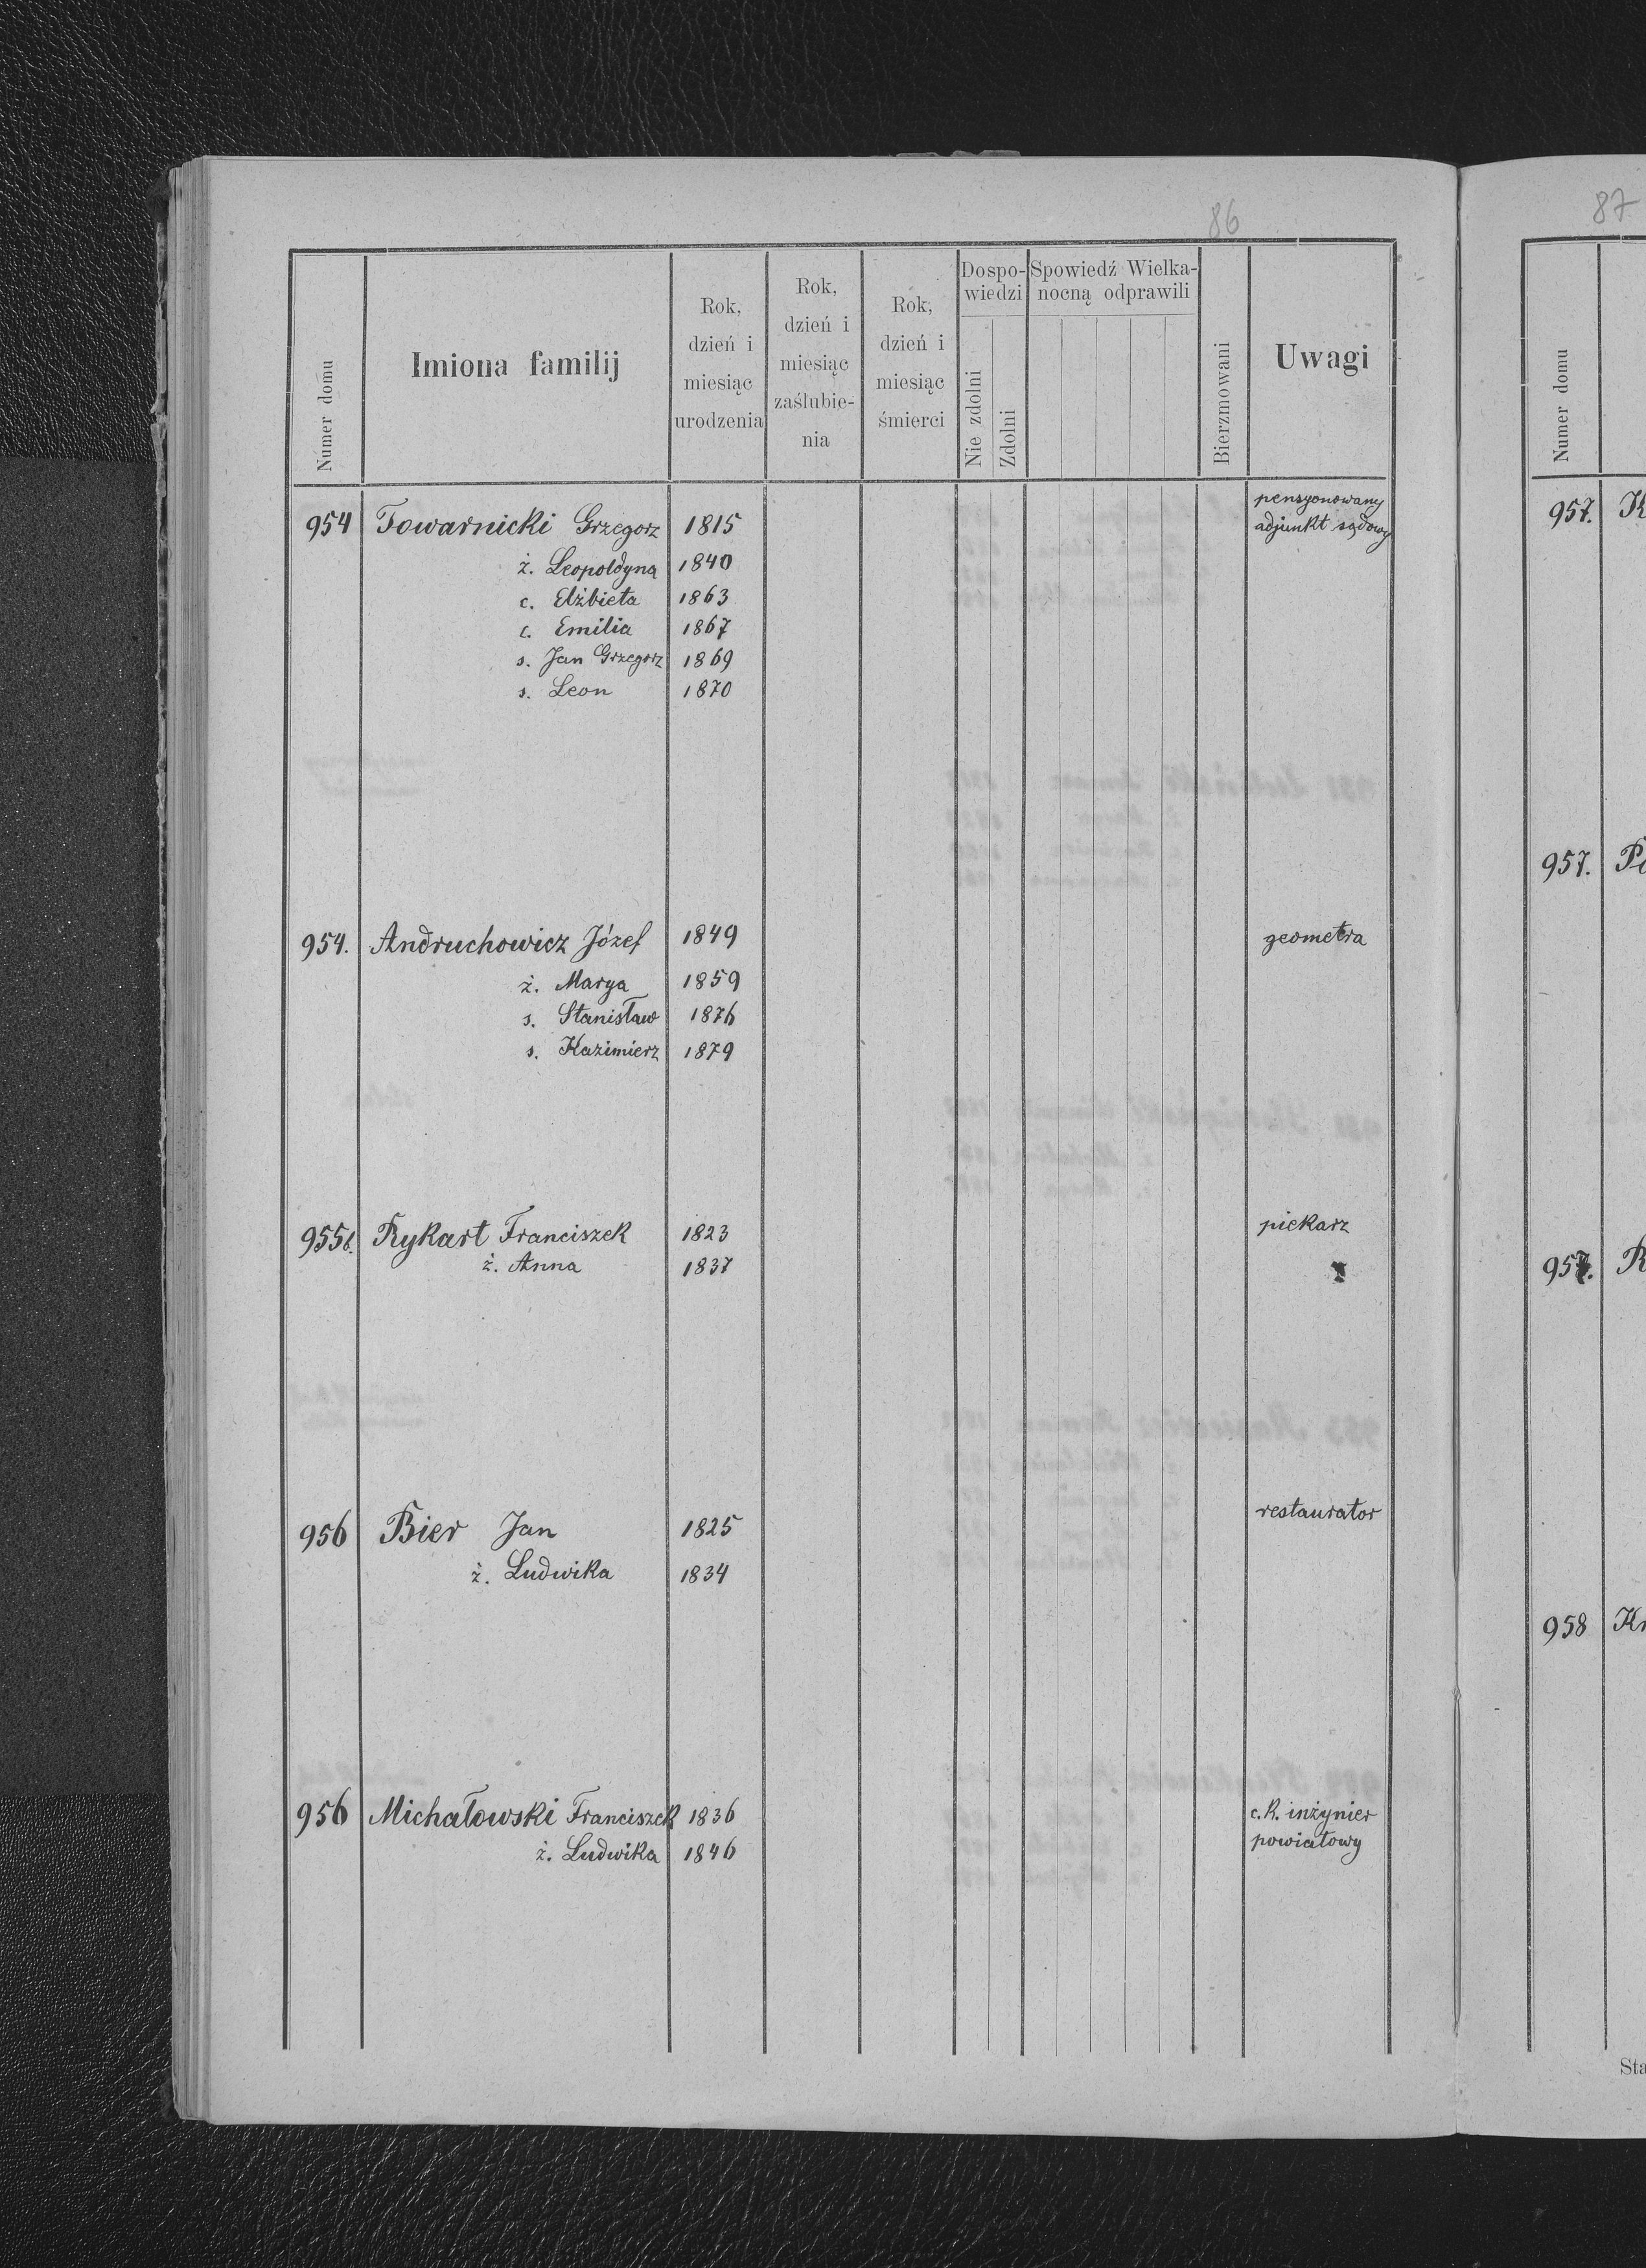 86
87
Numer domu
Imiona familij
Rok,
dzień i
miesiąc
urodzenia
Rok,
dzień i
miesiąc
zaślubie-
nia
Rok,
dzień i
miesiąc
śmierci
Dospo-
wiedzi
Nie zdolni
Zdolni
Spowiedź Wielka-
nocną odprawili
Bierzmowani
Uwagi
954 Towarnicki Grzegorz 1815 pensyonowany
adjunkt sądowy
ż. Leopoldyna 1840
c. Elżbieta 1863
c. Emilia 1867
s. Jan Grzegorz 1869
s. Leon 1870
954. Andruchowicz Józef 1849 geometra
ż. Marya 1859
s. Stanisław 1876
s. Kazimierz 1879
955b. Rykart Franciszek 1823 piekarz
ż. Anna 1837
956 Bier Jan 1825 restaurator
ż. Ludwika 1834
956 Michałowski Franciszek 1836 c.k. inżynier
ż. Ludwika 1846 powiatowy
Numer domu
957. K
957. Po
957. R
958 Kr
Sta